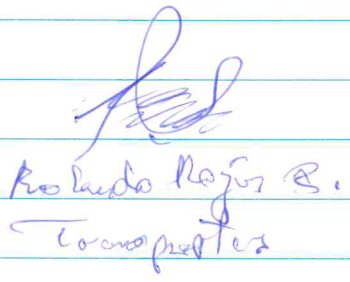 Rolando Rojas B.
Transportes